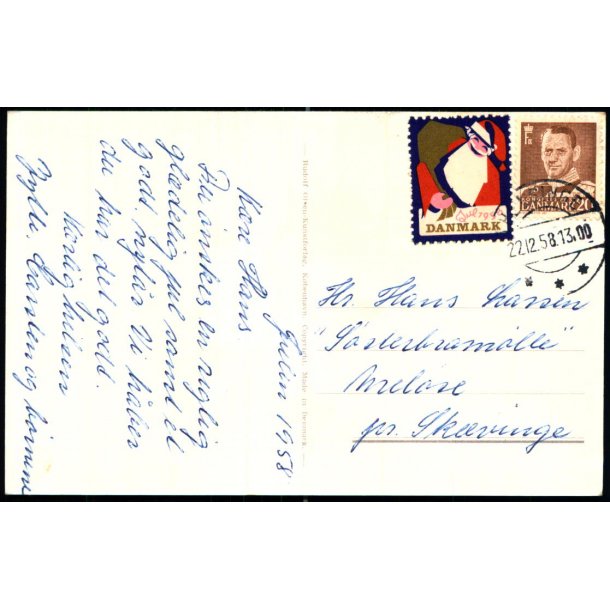 Julen 1958
Kære Hans
Du ønskes en rigtig
glædelig jul samt et
godt nytår. Vi håber
du har det godt.
Kærlig hilsen
Jytte Carsten og børnene
Rudolf Olsens Kunstforlag, København. Copyright. Made in Denmark.
Jul 1958
DANMARK
FR
DANMARK 20
22.12.58.13.00
Hr. Hans Larsen
"Sösterbramölle"
Meløse
pr. Skævinge